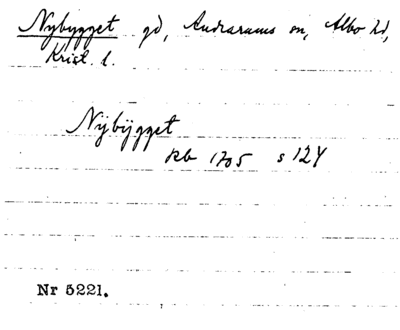 Nybygget gd, Andrarums sn, Albo hd,
Krist. l.
Nÿbÿgget
Rb 1705 s 124
Nr 5221.